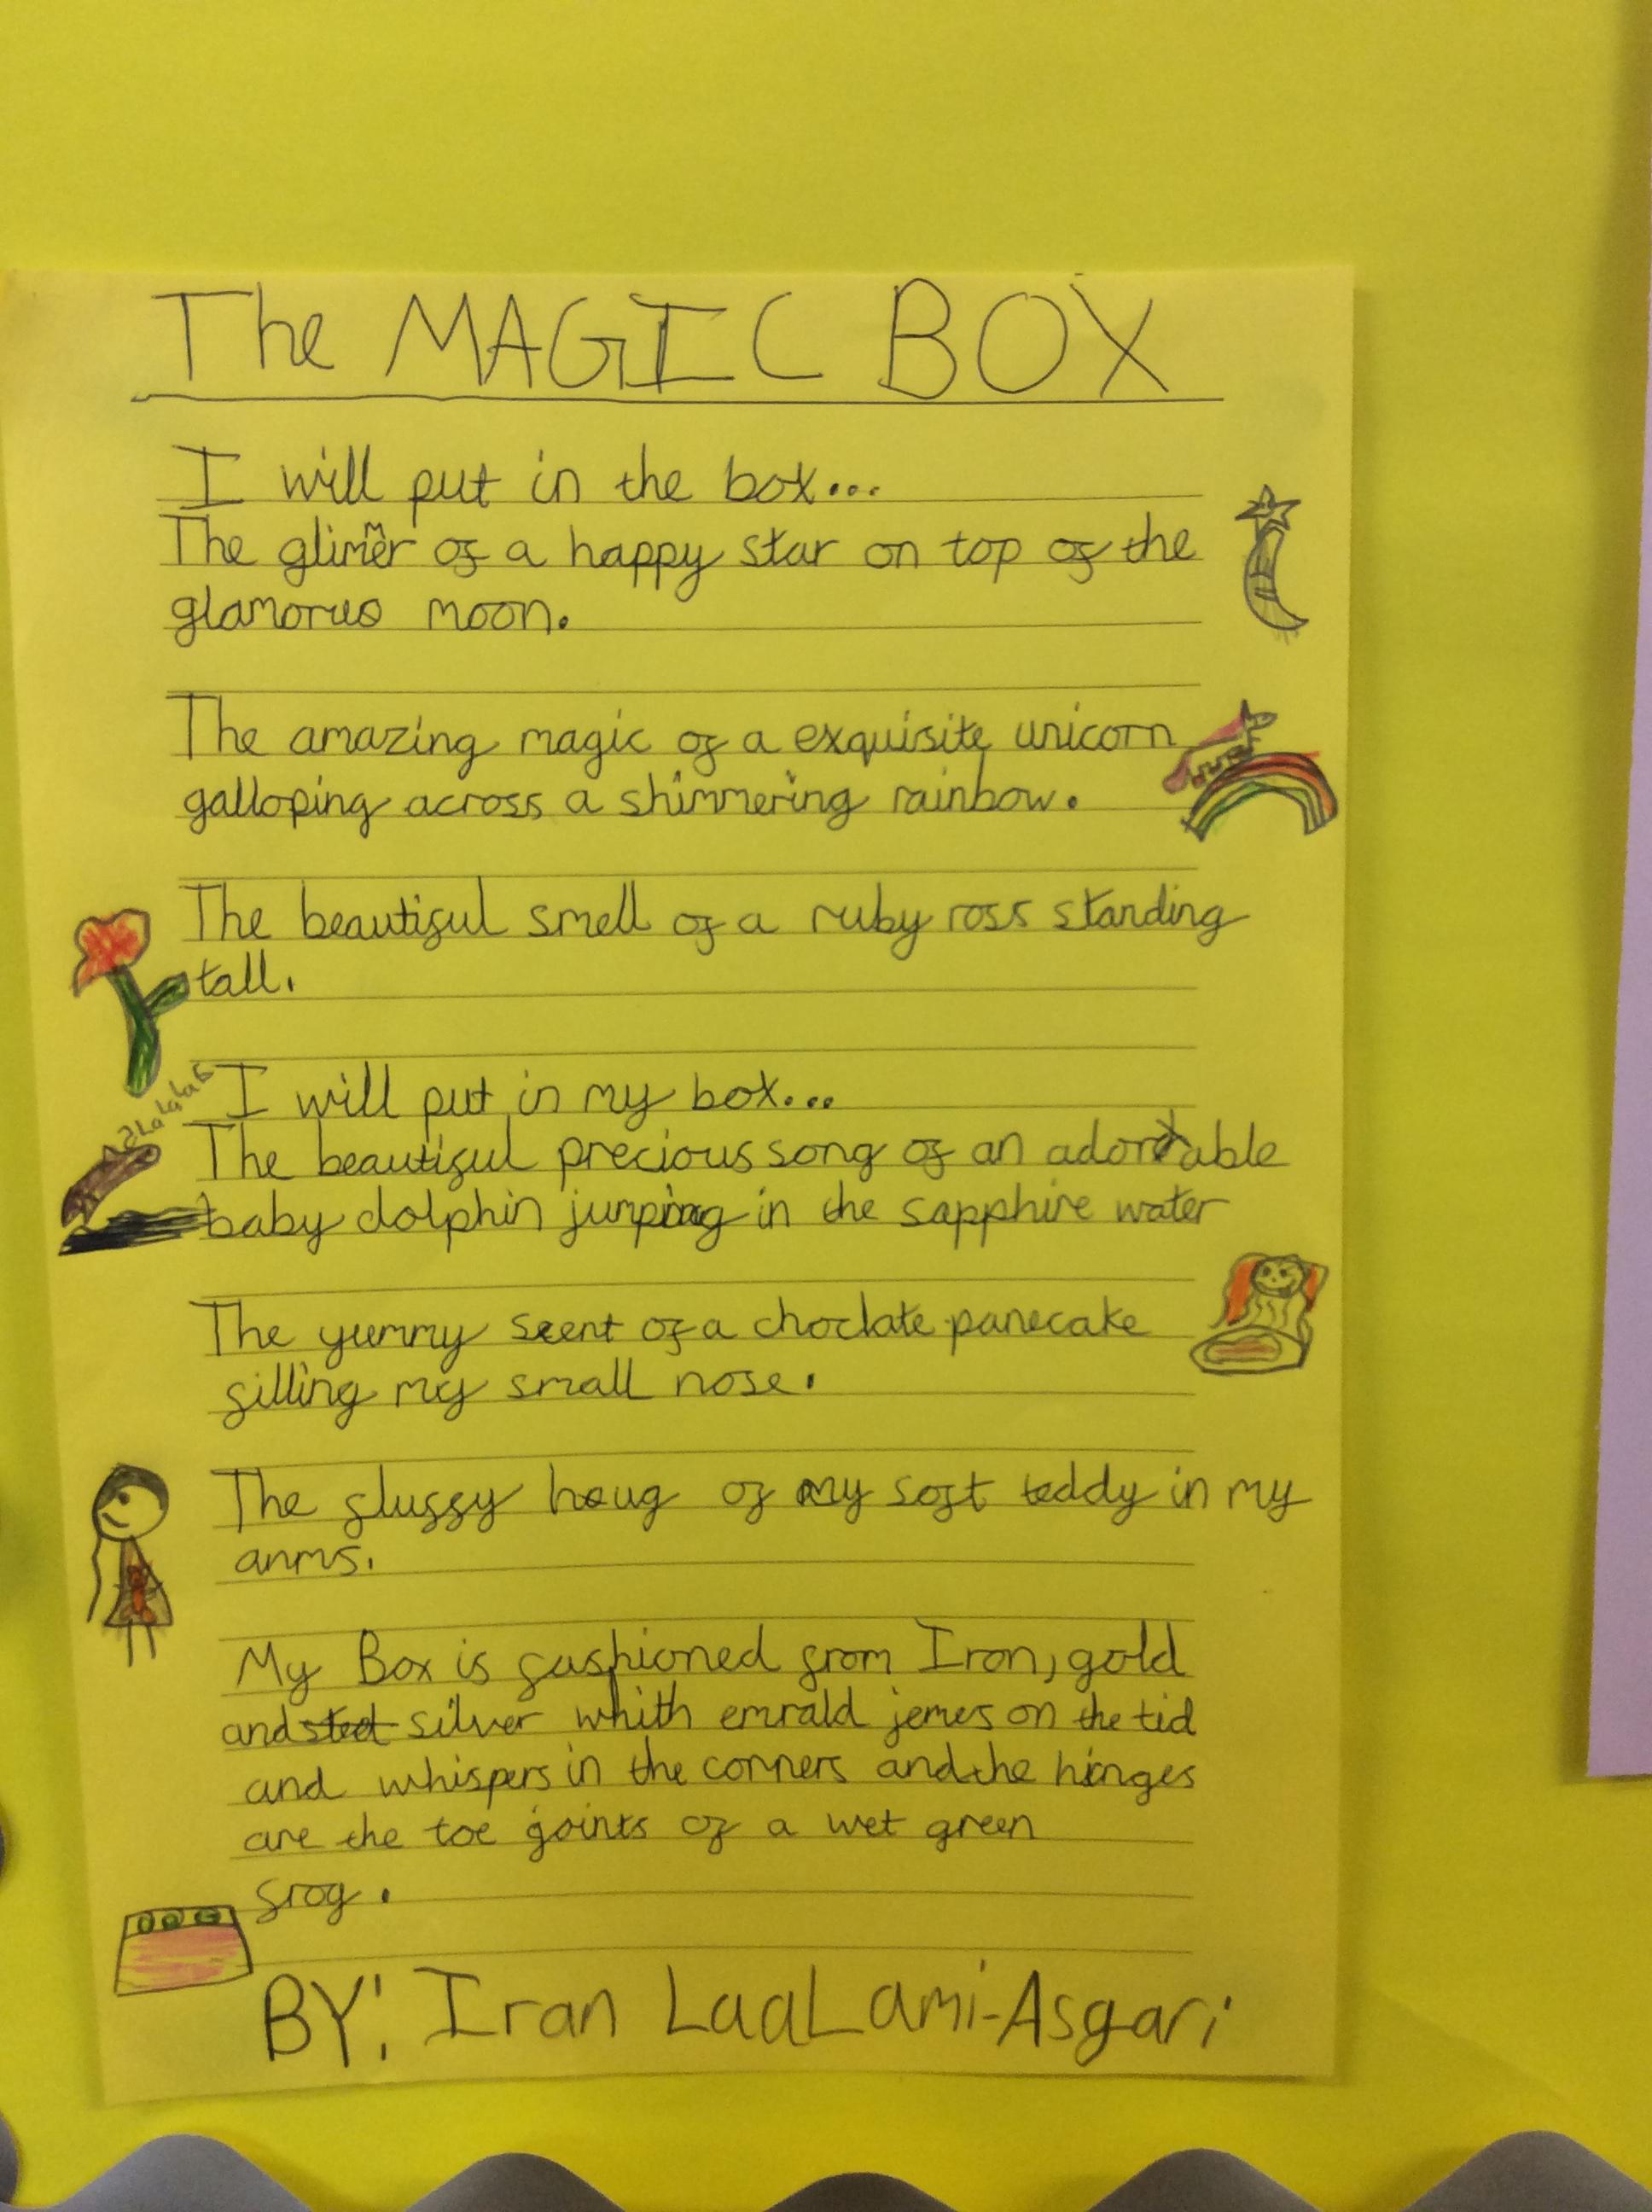 The MAGIC BOX
I will put in the box...
The glimmer of a happy star on top of the
glamorus moon.
The amazing magic of a exquisite unicorn
galloping across a shimmering rainbow.
The beautiful smell of a ruby ross standing
tall.
I will put in my box...
The beautiful precious song of an adorable
baby dolphin jumping in the sapphire water
The yummy scent of a choclate panecake
filling my small nose.
The fluffy houg of my soft teddy in my
arms.
My Box is fashioned from Iron, gold
and steel silver whith emrald jemes on the tid
and whispers in the corners and the hinges
are the toe joints of a wet green
frog.
BY: Iran LaaLami-Asgari